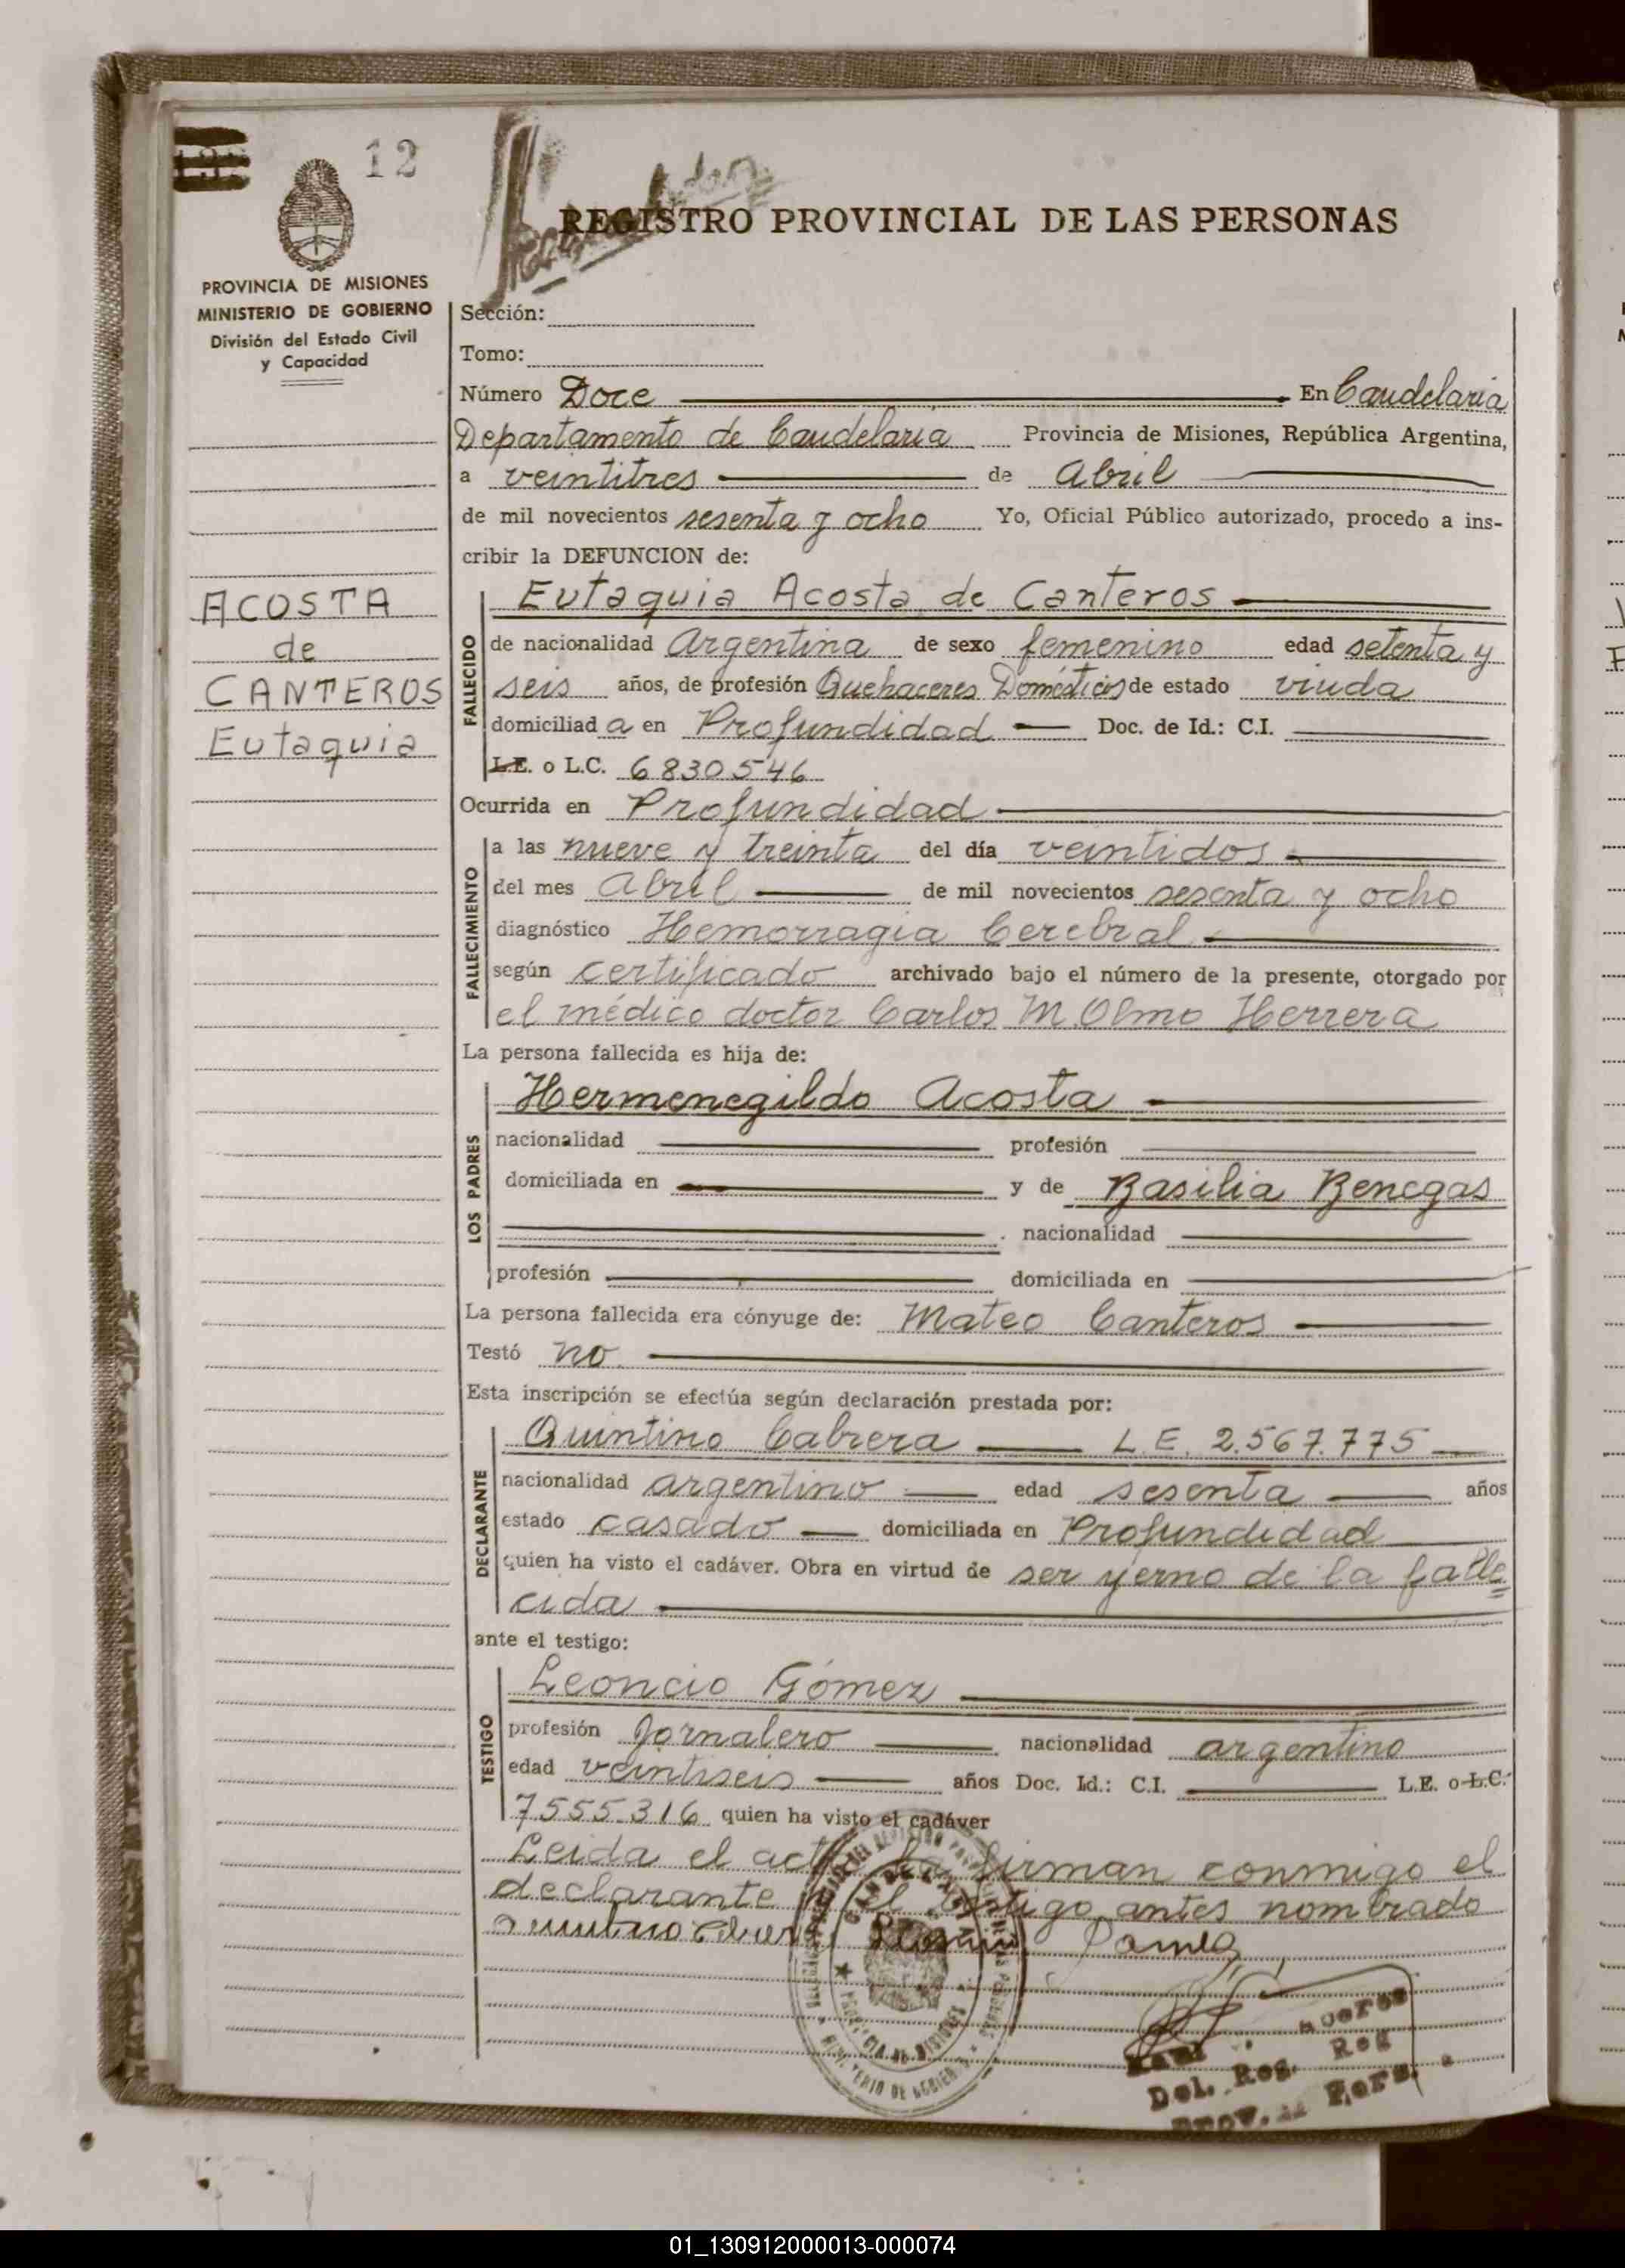 12
REGISTRO PROVINCIAL DE LAS PERSONAS
PROVINCIA DE MISIONES
MINISTERIO DE GOBIERNO
División del Estado Civil
y Capacidad
ACOSTA
de
CANTEROS
Eutaquia
Sección:
Tomo:
Número Doce En Candelaria
Departamento de Candelaria Provincia de Misiones, República Argentina,
a veintitres de Abril
de mil novecientos sesenta y ocho Yo, Oficial Público autorizado, procedo a ins-
cribir la DEFUNCION de:
FALLECIDO
Eutaquia Acosta de Canteros
de nacionalidad Argentina de sexo femenino edad setenta y
seis años, de profesión Quehaceres Domésticos de estado viuda
domiciliad a en Profundidad Doc. de Id.: C.I.
L.E. o L.C. 6830546
Ocurrida en Profundidad
FALLECIMIENTO
a las nueve y treinta del día veintidos
del mes Abril de mil novecientos sesenta y ocho
diagnóstico Hemorragia Cerebral
según certificado archivado bajo el número de la presente, otorgado por
el médico doctor Carlos M. Olmo Herrera
La persona fallecida es hija de:
LOS PADRES
Hermenegildo Acosta
nacionalidad profesión
domiciliada en y de Basilia Benegas
nacionalidad
profesión domiciliada en
La persona fallecida era cónyuge de: Mateo Canteros
Testó no
Esta inscripción se efectúa según declaración prestada por:
DECLARANTE
Quintino Cabrera L.E. 2.567.775
nacionalidad argentino edad sesenta años
estado casado domiciliada en Profundidad
quien ha visto el cadáver. Obra en virtud de ser yerno de la falle
cida
ante el testigo:
TESTIGO
Leoncio Gómez
profesión Jornalero nacionalidad argentino
edad veintiseis años Doc. Id.: C.I. L.E. o L.C.
7555316 quien ha visto el cadáver
Leida el acta la firman conmigo el
declarante y el testigo antes nombrado
Del. Reg.
01_130912000013-000074